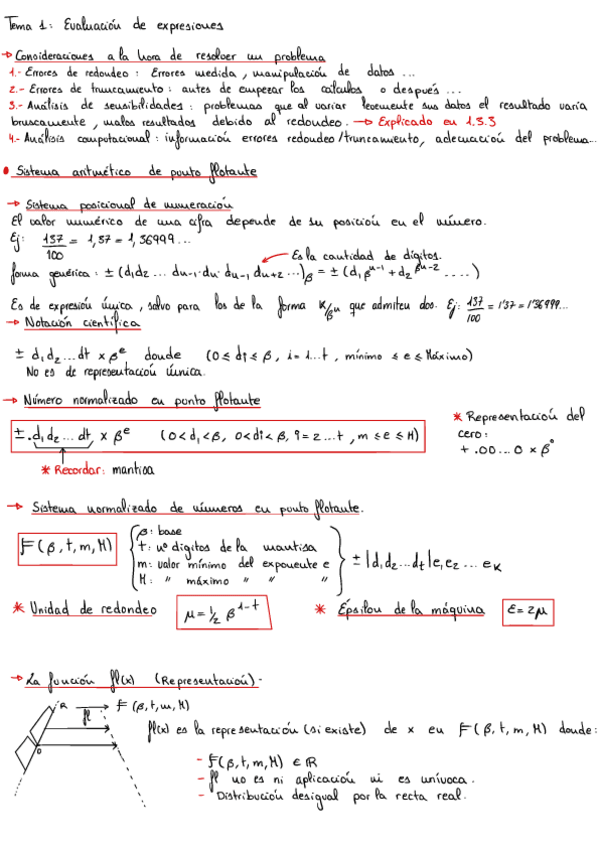 Tema 1: Evaluación de expresiones
→ Consideraciones a la hora de resolver un problema
1.- Errores de redondeo : Errores medida, manipulación de datos ...
2.- Errores de truncamiento : antes de empezar los cálculos o después ...
3.- Análisis de sensibilidades : problemas que al variar levemente sus datos el resultado varía
bruscamente, malos resultados debido al redondeo. → Explicado en 1.3.3
4.- Análisis computacional : información errores redondeo/truncamiento, adecuación del problema...
• Sistema aritmético de punto flotante
→ Sistema posicional de numeración
El valor numérico de una cifra depende de su posición en el número.
Ej: 137/100 = 1,37 = 1,36999...
Es la cantidad de dígitos.
forma genérica: ± (d₁d₂ ... dμ-1·dμ· dμ-1 dμ+2 ...)β = ± (d₁β^(μ-1) + d₂β^(μ-2) ....)
Es de expresión única, salvo para los de la forma K/β^μ que admiten dos. Ej: 137/100 = 1'37 = 1'36999...
→ Notación científica
± d₁d₂...dt × β^e donde (0 ≤ di ≤ β, i = 1...t, mínimo ≤ e ≤ Máximo)
No es de representación única.
→ Número normalizado en punto flotante
±.d₁d₂...dt × β^e (0<d₁<β, 0<di<β, i=2...t, m ≤ e ≤ M)
* Representación del
cero:
+ .00...0 × β⁰
* Recordar: mantisa
→ Sistema normalizado de números en punto flotante.
F(β,t,m,M)
β: base
t: nº dígitos de la mantisa
m: valor mínimo del exponente e
M: " máximo " " "
± |d₁d₂...dt|e₁e₂ ... eK
* Unidad de redondeo μ = 1/2 β^(1-t) * Épsilon de la máquina ε = 2μ
→ La función fl(x) (Representación).
R → F(β,t,m,M)
fl
0
fl(x) es la representación (si existe) de x en F(β,t,m,M) donde:
- F(β,t,m,M) ∈ R
- fl no es ni aplicación ni es unívoca.
- Distribución desigual por la recta real.